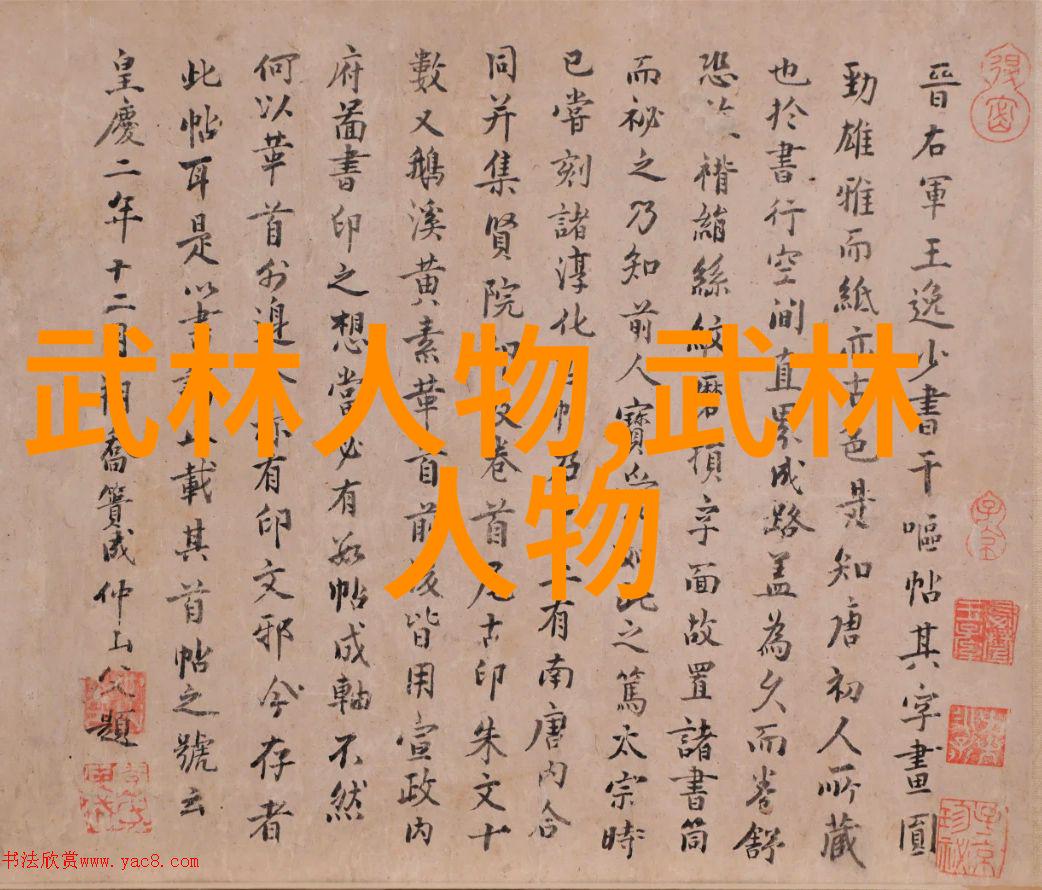 武林人物,武林
人物
晉右軍王逸少書干嘔帖其字畫圓
勁雄雅而紙亦古色是知唐初人所藏
也於書行空澗直界成路蓋為久而卷舒
恐 褙綃絲紋 損字面故置諸書筒
而祕之乃知前人寶 此之篤太宗時
已嘗刻諸淳化 有南唐內合
同并集賢院 卷首尾古印朱文十
數又鵝溪黃素華首前後皆用宣政內
府啚書印之想當必有數帖成軸不然
何以華首外邊 有印文邪今存者
此帖耳是以書 載其首帖之號云
皇慶二年十二月 喬簣成仲山父題
书法欣赏www.yac8.com